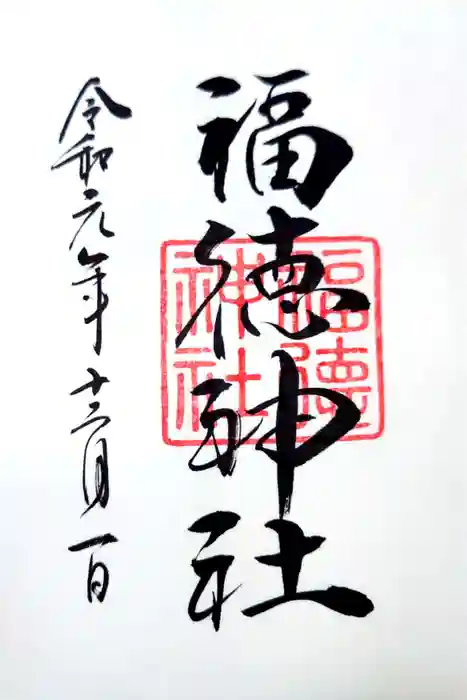 福徳神社
福徳
神社
令和元年十二月一日